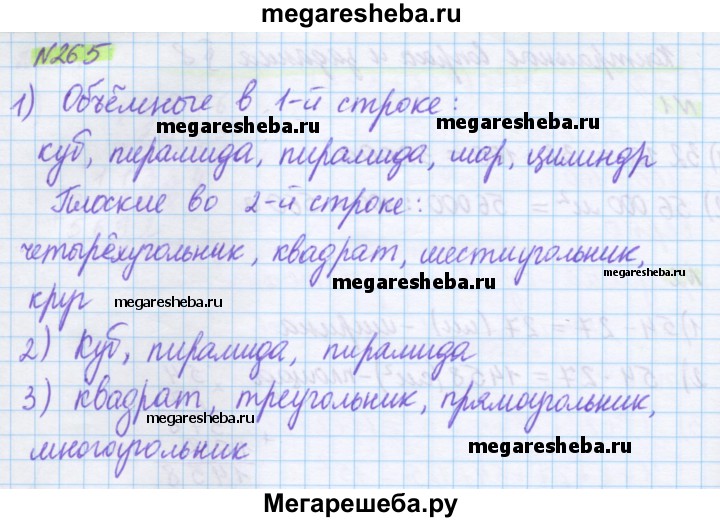 megaresheba.ru
№265
1) Объёмные в 1-й строке:
megaresheba.ru megaresheba.ru
куб, пирамида, пирамида, шар, цилиндр
Плоские во 2-й строке:
четырёхугольник, квадрат, шестиугольник,
megaresheba.ru megaresheba.ru
круг megaresheba.ru
2) Куб, пирамида, пирамида
megaresheba.ru
3) квадрат, треугольник, прямоугольник,
megaresheba.ru
многоугольник megaresheba.ru
Мегарешеба.ру